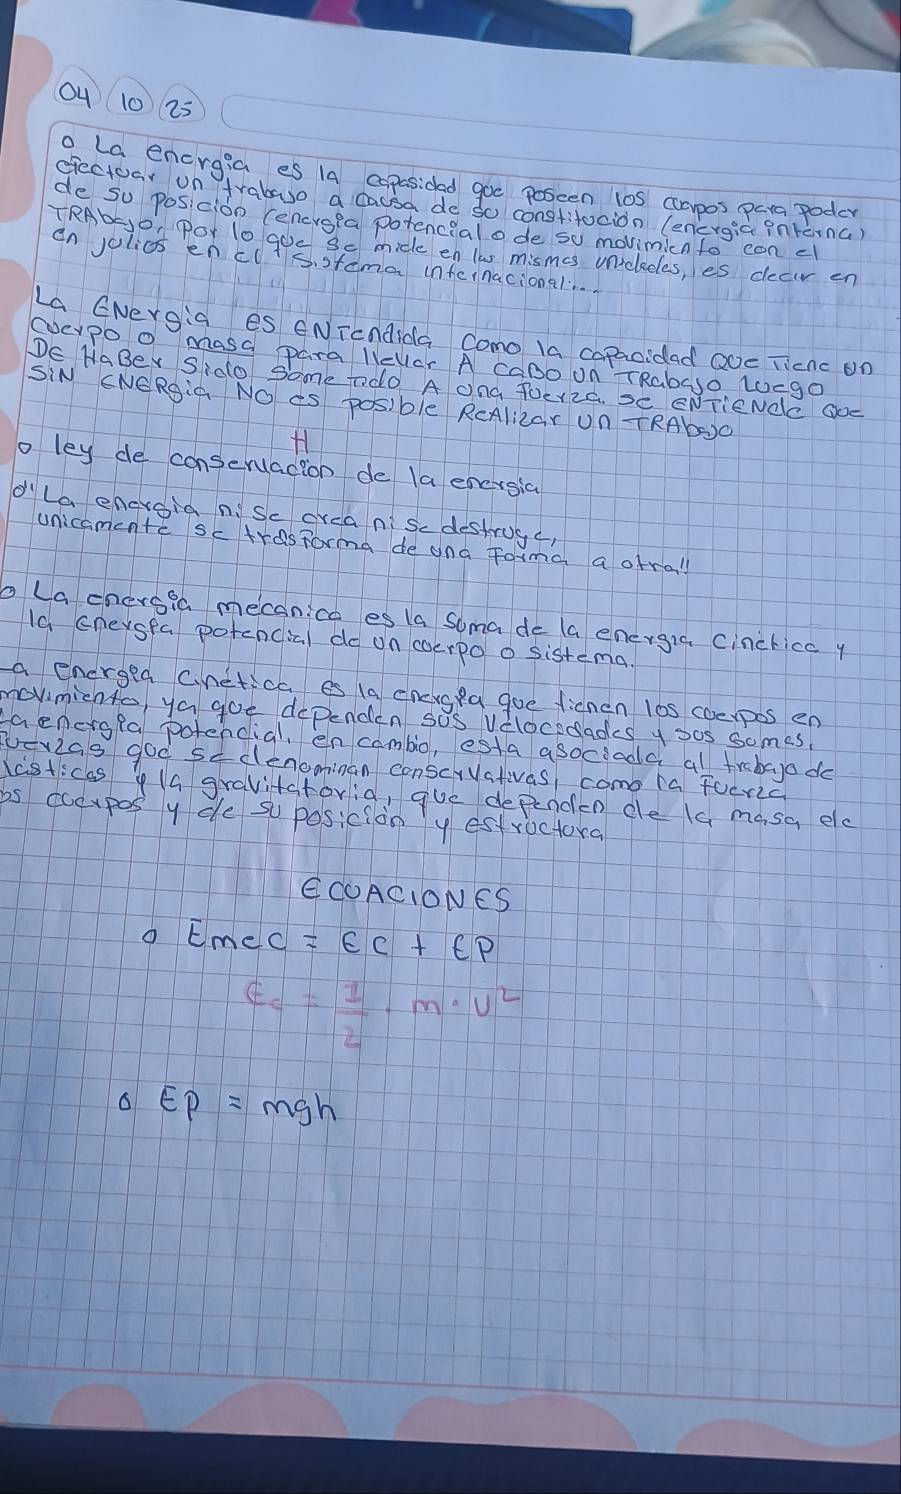 04 10 25
o La energia es la capasidad que poseen los cuerpos para poder
efectuar un trabajo a causa de so constitucion (energia interna)
de su posicion (energia potencial o de su movimiento con el
TRAbajo, por lo que se mide en las mismas unidades, es decir en
en julios en el sistema internacional....
La ENergia es ENTendida Como la capacidad QUE Tiene un
Cuerpo o masa para llevar A CABO Un TRabajo Luego
DE HaBer Sido Some Tido A Una fuerza. se ENTieNde Que
SiN ENERgia NO es posible ReAlizar Un TRAbajo
H
o ley de conservacion de la energia
o "La energia ni se crea ni se destruye,
unicamente se trasforma de una forma a otra"
o La energia mecanica es la Suma de la energia cinetica y
la energia potencial de un cuerpo o sistema.
La energia cinetica, es la energia que tienen los cuerpos en
movimiento, ya que dependen sus velocidades y sus somes,
La energia potencial, en cambio, esta asociada al trabajo de
fuerzas que se denominan conservativas, como la fuerza
elasticas y la gravitatoria, que dependen de la masa de
los cuerpos y de su posicion y estructura
ECUACIONES
o Emec = EC + EP
Ec = 1/2 · m · v²
o EP = mgh